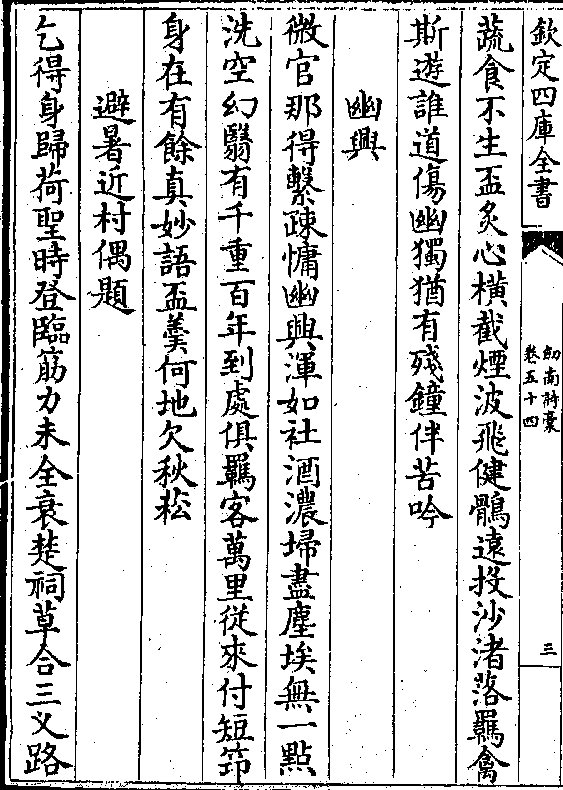 欽定四庫全書
劍南詩稾
卷五十四
三
蔬食不生盃炙心横截煙波飛健鶻遠投沙渚落羈禽
斯遊誰道傷幽獨猶有殘鐘伴苦吟
幽興
微官那得繫疎慵幽興渾如社酒濃埽盡塵埃無一點
洗空幻翳有千重百年到處俱羈客萬里從來付短笻
身在有餘真妙語盃羮何地欠秋菘
避暑近村偶題
乞得身歸荷聖時登臨筋力未全衰楚祠草合三义路